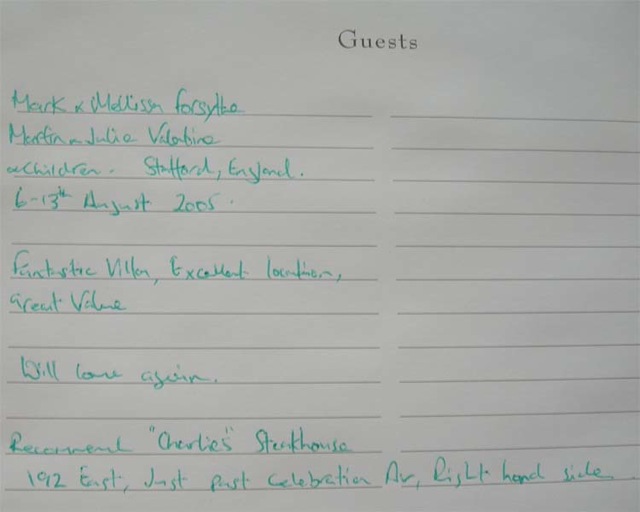 Guests
Mark & Mellissa Forsythe
Martin & Julie Valentine
& Children. Stafford, England.
6-13th August 2005.
Fantastic Villa, Excellent location,
Great Value
Will come again.
Recommend "Charlies" Steakhouse
192 East, Just past Celebration Av, Right hand side.